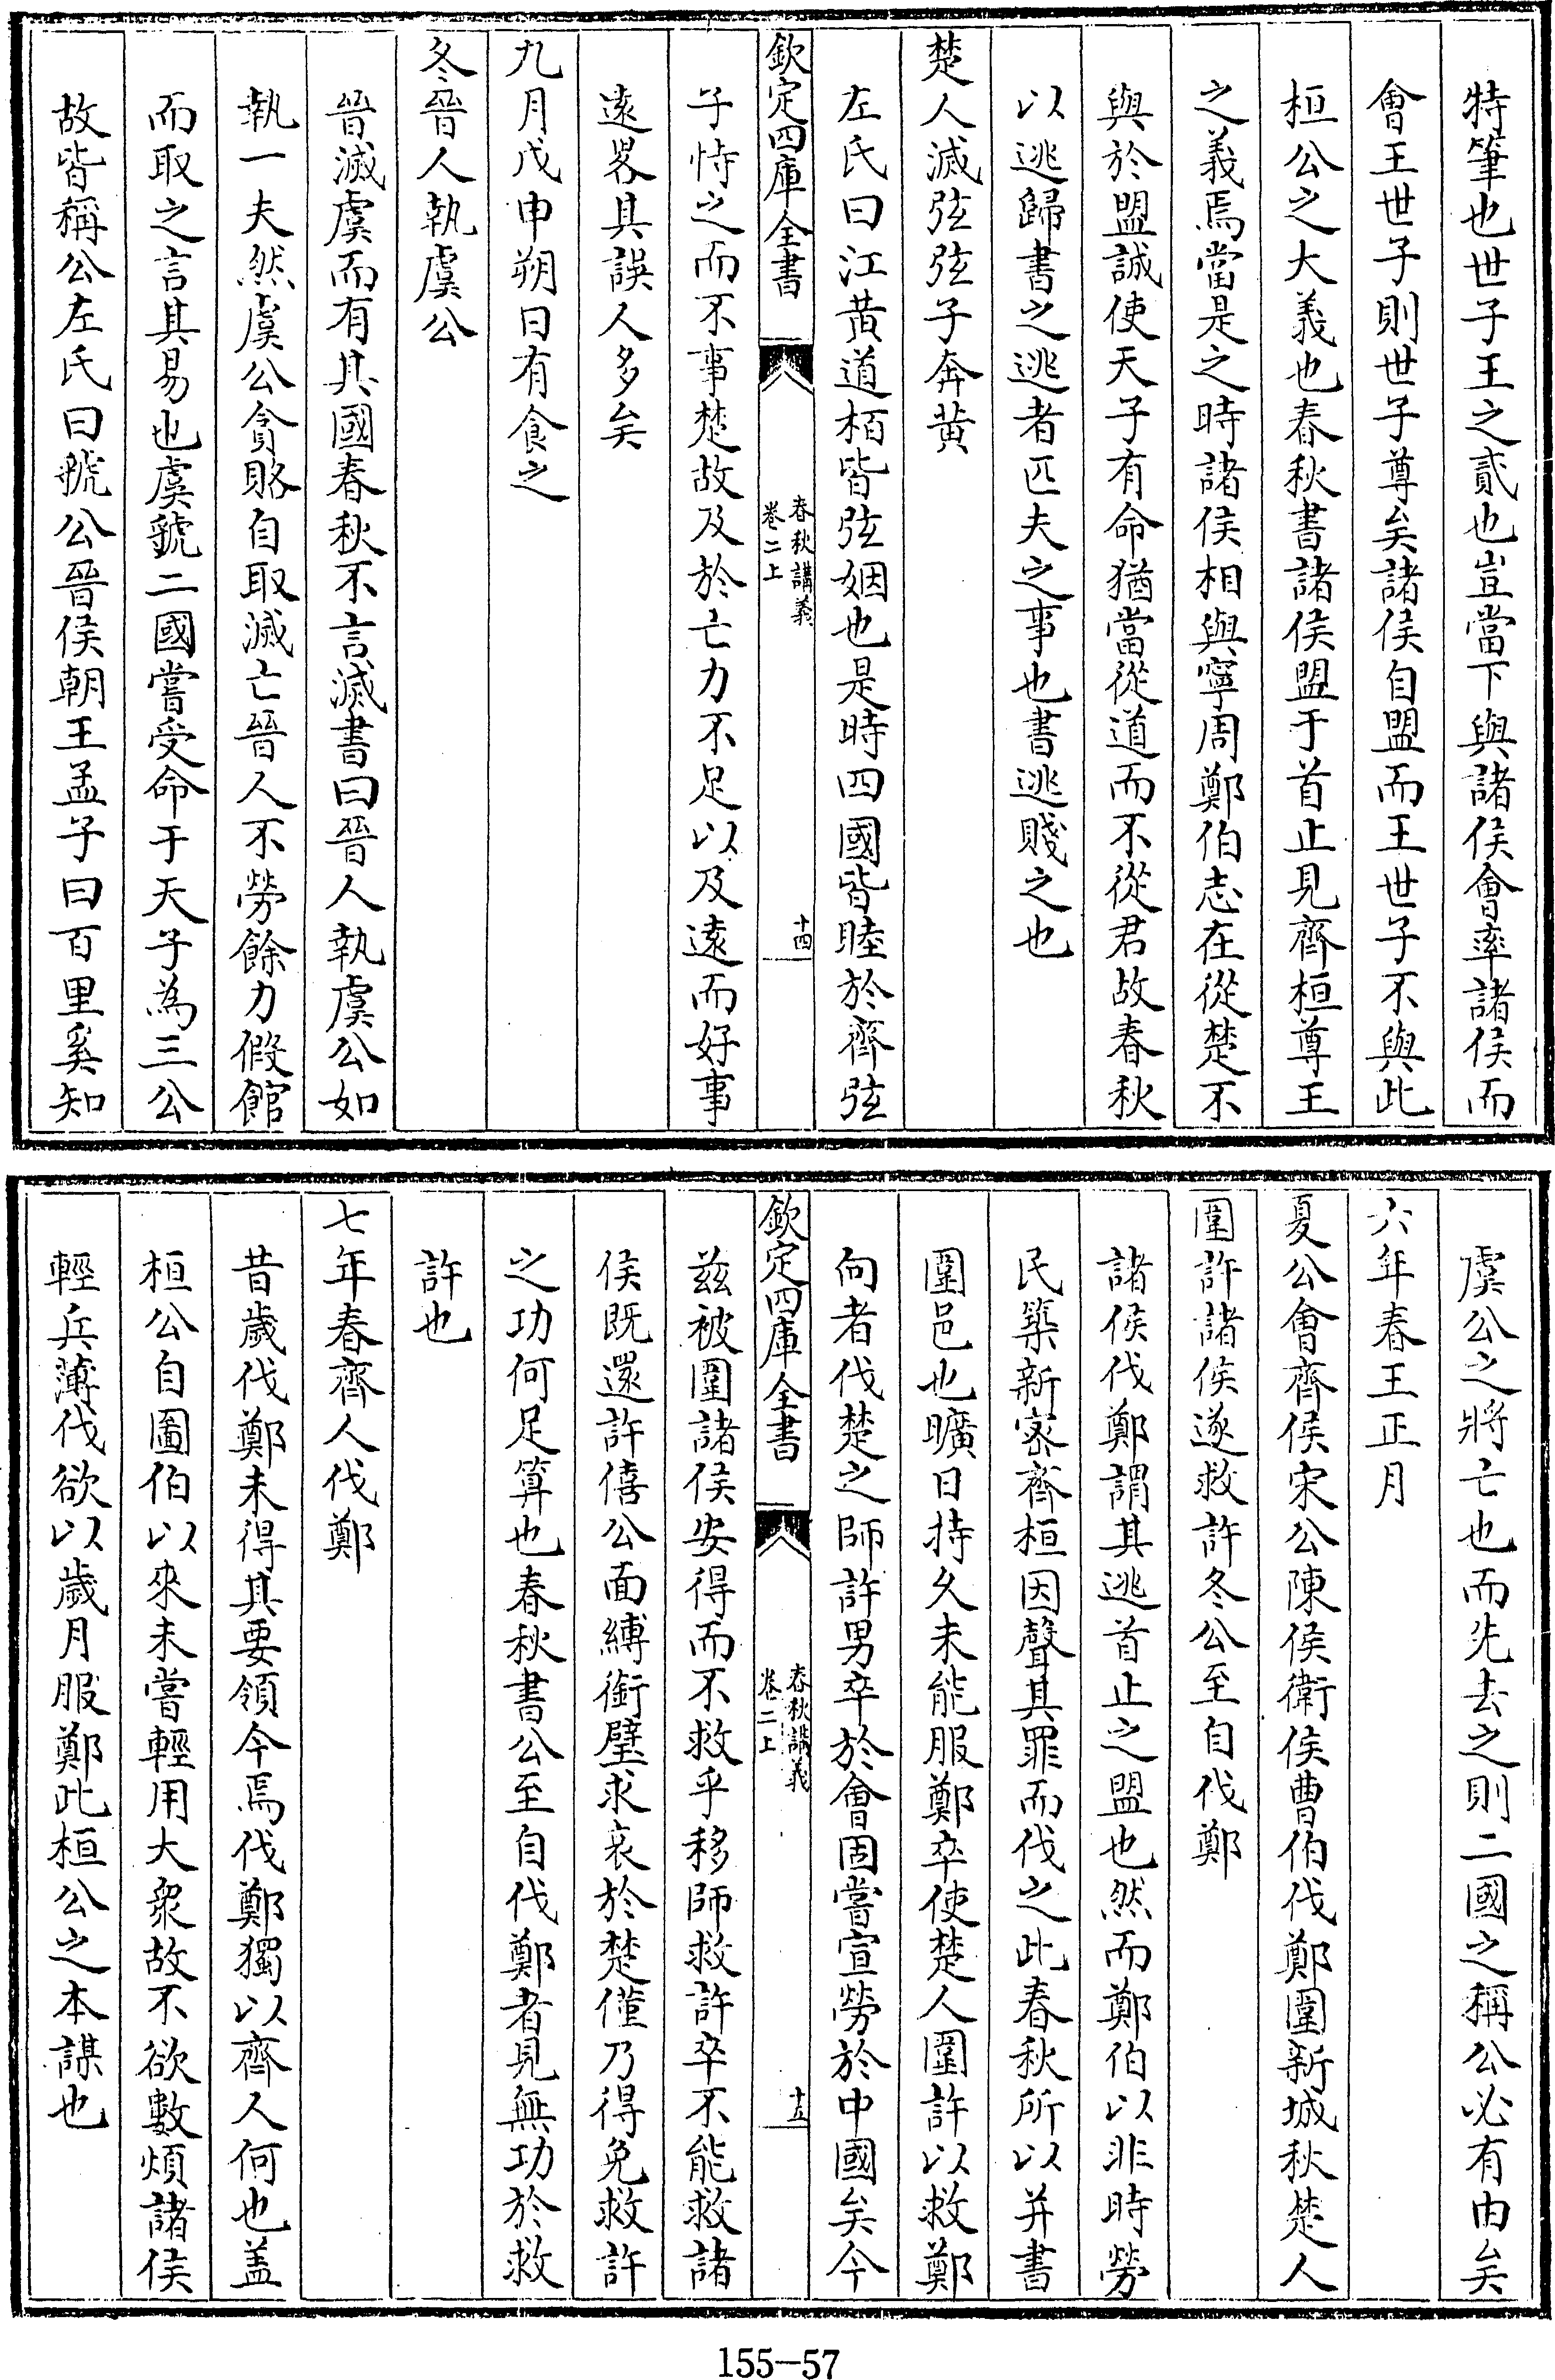 特筆也世子王之貳也豈當下與諸侯會率諸侯而
會王世子則世子尊矣諸侯自盟而王世子不與此
桓公之大義也春秋書諸侯盟于首止見齊桓尊王
之義焉當是之時諸侯相與寧周鄭伯志在從楚不
與於盟誠使天子有命猶當從道而不從君故春秋
以逃歸書之逃者匹夫之事也書逃賤之也
楚人滅弦弦子奔黄
左氏曰江黄道栢皆弦姻也是時四國皆睦於齊弦
欽定四庫全書
春秋講義
卷二上
十四
子恃之而不事楚故及於亡力不足以及逺而好事
逺畧其誤人多矣
九月戊申朔日有食之
冬晉人執虞公
晉滅虞而有其國春秋不言滅書曰晉人執虞公如
執一夫然虞公貪賂自取滅亡晉人不勞餘力假館
而取之言其易也虞虢二國嘗受命于天子為三公
故皆稱公左氏曰虢公晉侯朝王孟子曰百里奚知
虞公之將亡也而先去之則二國之稱公必有由矣
六年春王正月
夏公會齊侯宋公陳侯衛侯曹伯伐鄭圍新城秋楚人
圍許諸侯遂救許冬公至自伐鄭
諸侯伐鄭謂其逃首止之盟也然而鄭伯以非時勞
民築新宻齊桓因聲其罪而伐之此春秋所以并書
圍邑也曠日持久未能服鄭卒使楚人圍許以救鄭
向者伐楚之師許男卒於會固嘗宣勞於中國矣今
欽定四庫全書
春秋講義
卷二上
十五
兹被圍諸侯安得而不救乎移師救許卒不能救諸
侯既還許僖公面縛銜璧求哀於楚僅乃得免救許
之功何足算也春秋書公至自伐鄭者見無功於救
許也
七年春齊人伐鄭
昔歲伐鄭未得其要領今焉伐鄭獨以齊人何也盖
桓公自圖伯以來未嘗輕用大衆故不欲數煩諸侯
輕兵薄伐欲以歲月服鄭此桓公之本謀也
155-57